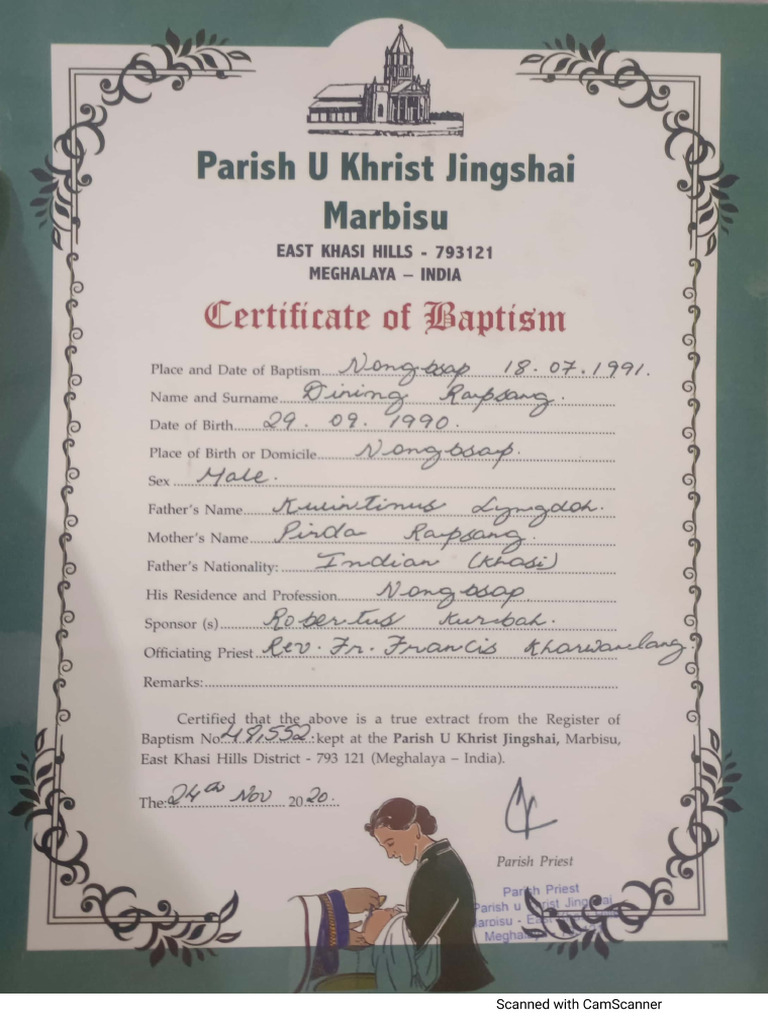 Parish U Khrist Jingshai
Marbisu
EAST KHASI HILLS - 793121
MEGHALAYA – INDIA
Certificate of Baptism
Place and Date of Baptism Nongbsap 18.07.1991.
Name and Surname Dining Rapsang.
Date of Birth 29. 09. 1990.
Place of Birth or Domicile Nongbsap.
Sex Male.
Father's Name Kwintinus Lyngdoh.
Mother's Name Pirda Rapsang.
Father's Nationality: Indian (Khasi)
His Residence and Profession Nongbsap
Sponsor (s) Robertus Kurbah.
Officiating Priest Rev. Fr. Francis
Remarks:
Certified that the above is a true extract from the Register of
Baptism No. 48,552 kept at the Parish U Khrist Jingshai, Marbisu,
East Khasi Hills District - 793 121 (Meghalaya – India).
The: 24th Nov 2020.
Parish Priest
Parish Priest
Parish u
Scanned with CamScanner